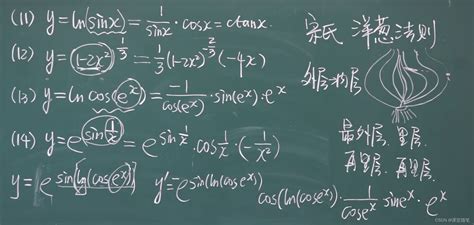 (11) y = ln(sinx) = 1/sinx · cosx = ctanx.
(12) y = (1-2x²)^(1/3) = 1/3 (1-2x²)^(-2/3) (-4x)
(13) y = ln cos(e^x) = -1/cos(e^x) · sin(e^x) · e^x
(14) y = e^(sin 1/x) = e^(sin 1/x) · cos 1/x · (-1/x²)
y = e^(sin[ln(cos e^x)]) y' = -e^(sin(ln(cos e^x))) cos(ln(cos e^x)) · 1/cos e^x sin e^x · e^x
宋氏 洋葱法则
外层→内层
最外层, 里层,
再里层, 再里层.